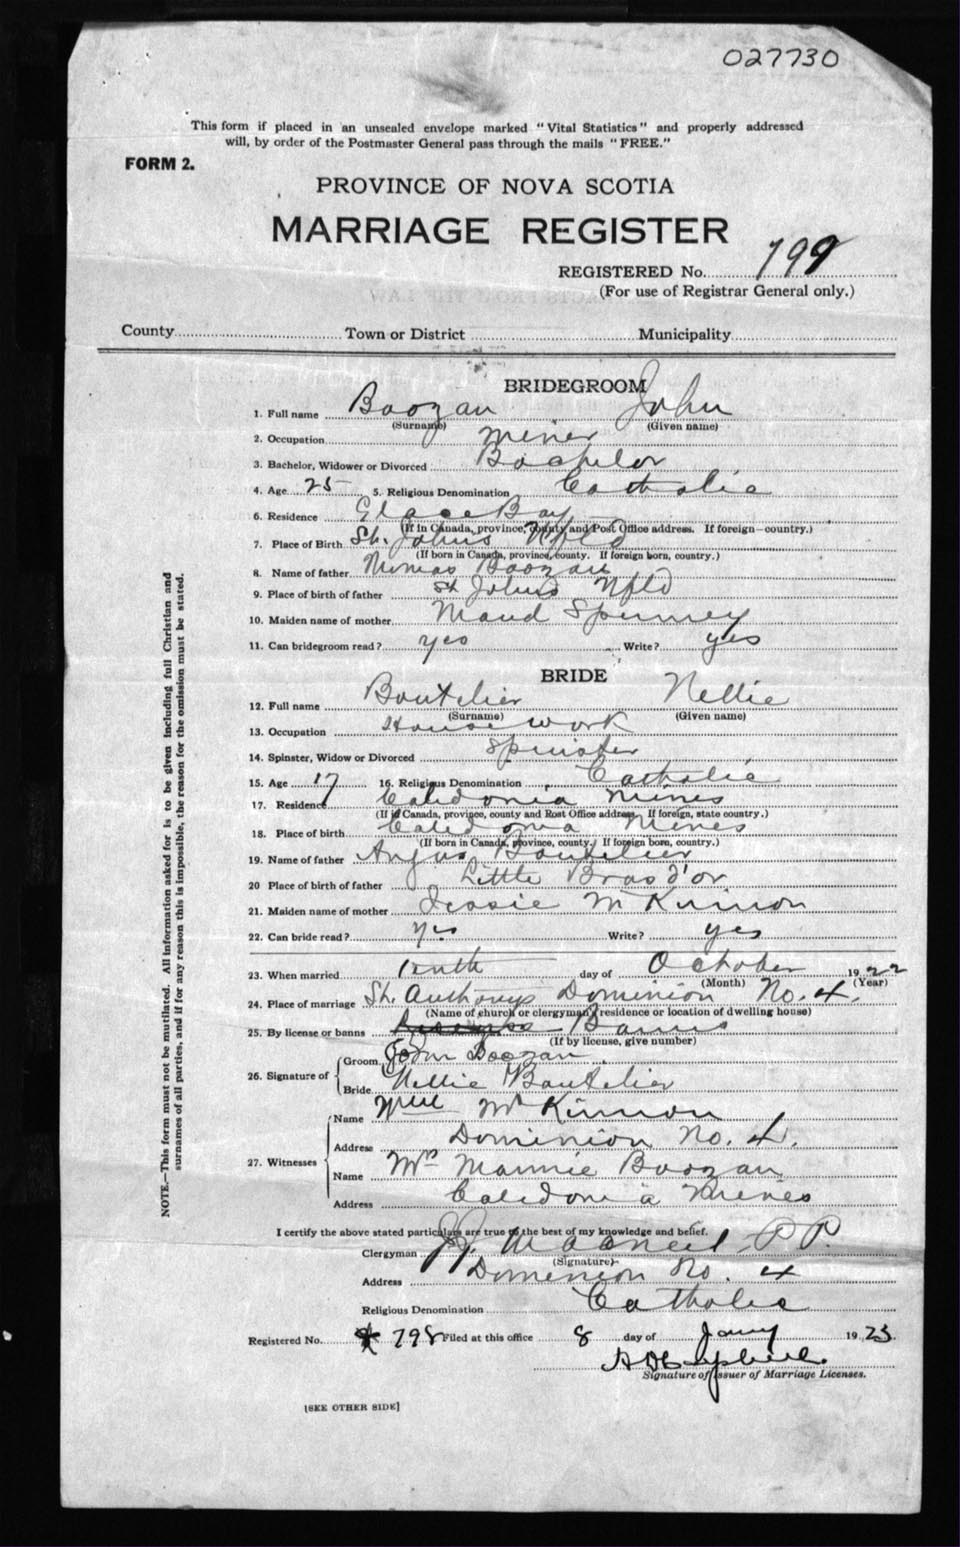 027730
This form if placed in an unsealed envelope marked "Vital Statistics" and properly addressed
will, by order of the Postmaster General pass through the mails "FREE."
FORM 2.
PROVINCE OF NOVA SCOTIA
MARRIAGE REGISTER
REGISTERED No. 799
(For use of Registrar General only.)
County Town or District Municipality
BRIDEGROOM
1. Full name Boozan John
(Surname) (Given name)
2. Occupation Miner
3. Bachelor, Widower or Divorced Bachelor
4. Age 25 5. Religious Denomination Catholic
6. Residence Glace Bay
(If in Canada, province, county and Post Office address. If foreign—country.)
7. Place of Birth St. Johns Nfld
(If born in Canada, province, county. If foreign born, country.)
8. Name of father Thomas Boozan
9. Place of birth of father St Johns Nfld
10. Maiden name of mother Maud Spurney
11. Can bridegroom read? yes Write? yes
BRIDE
12. Full name Boutelier Nellie
(Surname) (Given name)
13. Occupation House work
14. Spinster, Widow or Divorced Spinster
15. Age 17 16. Religious Denomination Catholic
17. Residence Caledonia Mines
(If in Canada, province, county and Post Office address. If foreign, state country.)
18. Place of birth Caledonia Mines
(If born in Canada, province, county. If foreign born, country.)
19. Name of father Angus Boutelier
20 Place of birth of father Little Bras d'or
21. Maiden name of mother Jessie McKinnon
22. Can bride read? yes Write? yes
23. When married Tenth day of October 1922
(Month) (Year)
24. Place of marriage St. Anthonys Dominion No. 4.
(Name of church or clergyman's residence or location of dwelling house)
25. By license or banns Banns
(If by license, give number)
26. Signature of Groom John Boozan
Bride Nellie Boutelier
27. Witnesses Name McKinnon
Address Dominion No. 4.
Name Mrs Mannie Boozan
Address Caledonia Mines
I certify the above stated particulars are true to the best of my knowledge and belief.
Clergyman MacNeil P.P.
(Signature)
Address Dominion No. 4
Religious Denomination Catholic
Registered No. 798 Filed at this office 8 day of Jany 1923.
Signature of Issuer of Marriage Licenses.
[SEE OTHER SIDE]
NOTE.—This form must not be mutilated. All information asked for is to be given including full Christian and
surnames of all parties, and if for any reason this is impossible, the reason for the omission must be stated.